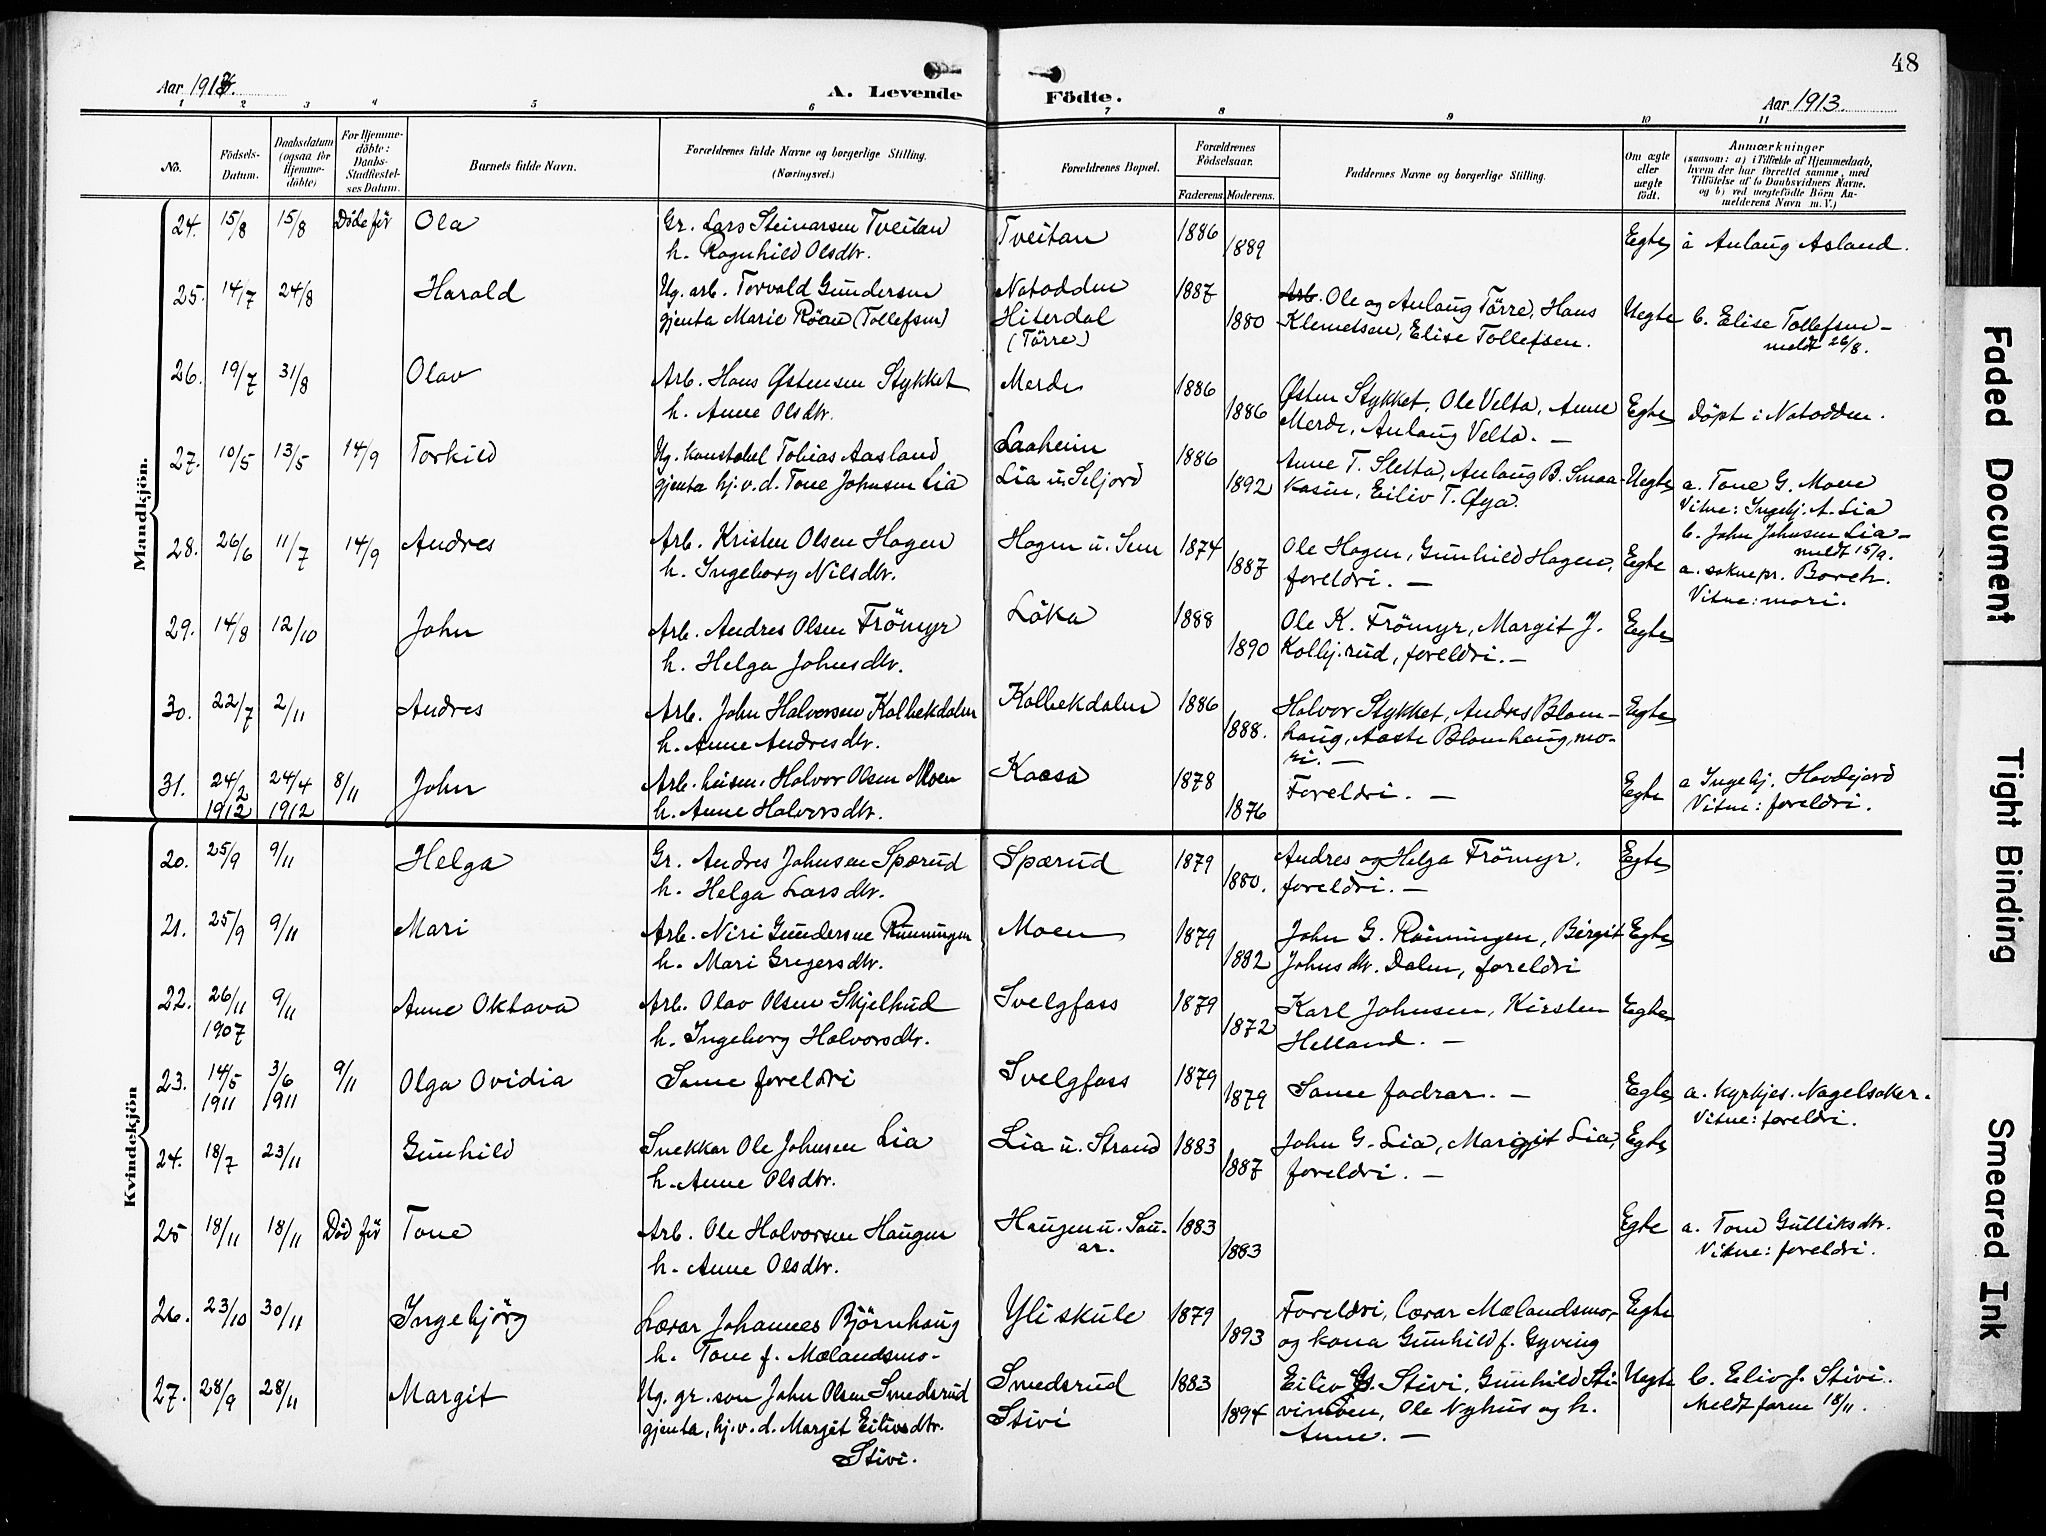 48
Aar 1913.
A. Levende Födte.
Aar 1913.
1 2 3 4 5 6 7 8 9 10 11
No.
Födsels-Datum.
Daabsdatum (ogsaa for Hjemme-döbte)
For Hjemme-döbte: Daabs-Stadfæstel-ses Datum.
Barnets fulde Navn.
Forældrenes fulde Navne og borgerlige Stilling. (Næringsvei.)
Forældrenes Bopæl.
Forældrenes Födselsaar.
Faderens. Moderens.
Faddernes Navne og borgerlige Stilling.
Om ægte eller uægte födt.
Anmærkninger
(saasom: a) i Tilfælde af Hjemmedaab,
hvem der har forrettet samme, med
Tilföielse af to Daabsvidners Navne,
og b) ved uægtefödte Börn An-
melderens Navn m. V.)
Mandkjön.
24. 15/8 15/8 Döde för Ola Gr. Lars Steinarsen Tveitan Tveitan 1886 Egte a Anlaug Asland.
h. Ragnhild Olsdtr. 1889
25. 14/7 24/8 Harald Ug. arb. Torvald Gundersen Notodden 1887 Arb. Ole og Anlaug Törre, Hans Uegte b. Elise Tollefsen -
gjenta Marie Röen (Tollefsen) Hiterdal (Törre) 1880 Klemetsen, Elise Tollefsen. meldt 26/8.
26. 19/7 31/8 Olav Arb. Hans Østensen Stykket Merde 1886 Østen Stykket, Ole Velta, Anne Egte Döpt i Notodden.
h. Anne Olsdtr. 1886 Merde, Anlaug Velta. -
27. 10/5 13/5 14/9 Torkild Ug. konstabel Tobias Aasland Saaheim 1886 Anne T. Sletta, Anlaug B. Smaa- Uegte a. Tone G. Moen
gjenta hj.v.d. Tone Johnsen Lia Lia u. Seljord 1892 kasin, Eiliv T. Øya. Vitne: Ingebj. A. Lia
b. John Johnsen Lia -
meldt 15/9.
28. 26/6 11/7 14/9 Andres Arb. Kristen Olsen Hagen Hagen u. Sem 1874 Ole Hagen, Gunhild Hagen, Egte a. soknepr. Borch.
h. Ingeborg Nilsdtr. 1887 foreldri. - Vitne: mori.
29. 14/8 12/10 John Arb. Andres Olsen Frömyr Löka 1888 Ole K. Frömyr, Margit J. Egte
h. Helga Johnsdtr. 1890 Kolbj.rud, foreldri. -
30. 22/7 2/11 Andres Arb. John Halvorsen Kolbekdalen Kolbekdalen 1886 Halvor Stykket, Andres Blom- Egte
h. Anne Andresdtr. 1888. haug, Aaste Blomhaug, mo-
ri. -
31. 24/2 1912 24/4 1912 8/11 John Arb. husm. Halvor Olsen Moen Kaasa 1878 Foreldri. - Egte a Ingebj. Hovdejord
h. Anne Halvorsdtr. 1876 Vitne: foreldri.
Kvindekjön
20. 25/9 9/11 Helga Gr. Andres Johnsen Spærud Spærud 1879 Andres og Helga Frömyr, Egte
h. Helga Larsdtr. 1880. foreldri. -
21. 25/9 9/11 Mari Arb. Niri Gundersen Rönningen Moen 1879 John G. Rönningen, Birgit Egte
h. Mari Gregersdtr. 1882 Johnsdtr. Dalen, foreldri
22. 26/11 1907 9/11 Anne Oktava Arb. Olav Olsen Skjelbud Svelgfoss 1879 Karl Johnsen, Kirsten Egte
h. Ingeborg Halvorsdtr. 1872 Helland. -
23. 14/5 1911 3/6 1911 9/11 Olga Ovidia Same foreldri Svelgfoss 1879 1879 Same fadrar. - Egte a. kyrkjes. Nagelsaker.
Vitne: foreldri.
24. 18/7 23/11 Gunhild Snekkar Ole Johnsen Lia Lia u. Strand 1883 John G. Lia, Margit Lia, Egte
h. Anne Olsdtr. 1887 foreldri. -
25 18/11 18/11 Död för Tone Arb. Ole Halvorsen Haugen Haugen u. Sau-ar. 1883 Egte a. Tone Gulliksdtr.
h. Anne Olsdtr. 1883 Vitne: foreldri.
26. 23/10 30/11 Ingebjörg Lærar Johannes Björnhaug Yli skule 1879 Foreldri, lærar Mælandsmo, Egte
h. Tone f. Mælandsmo. 1893 og kona Gunhild f. Gyving
27. 28/9 28/11 Margit Ug. gr. son John Olsen Smedsrud Smedsrud 1883 Eiliv G. Stivi, Gunhild Sti- Uegte b. Eliv J. Stivi.
gjenta, hj.v.d. Margit Eilivsdtr. Stivi. Stivi 1894 vinöen, Ole Nyhus og h. Meldt form 18/11.
Anne. -
Faded Document
Tight Binding
Smeared Ink